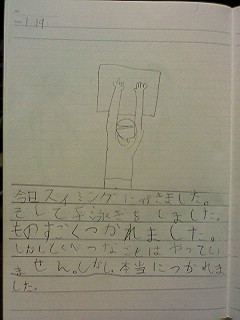 1.19
今日スイミングに行きました。
そして平泳ぎをしました。
ものすごくつかれました。
しかしてくべつなことはやってい
ません。しかし、本当につかれま
した。